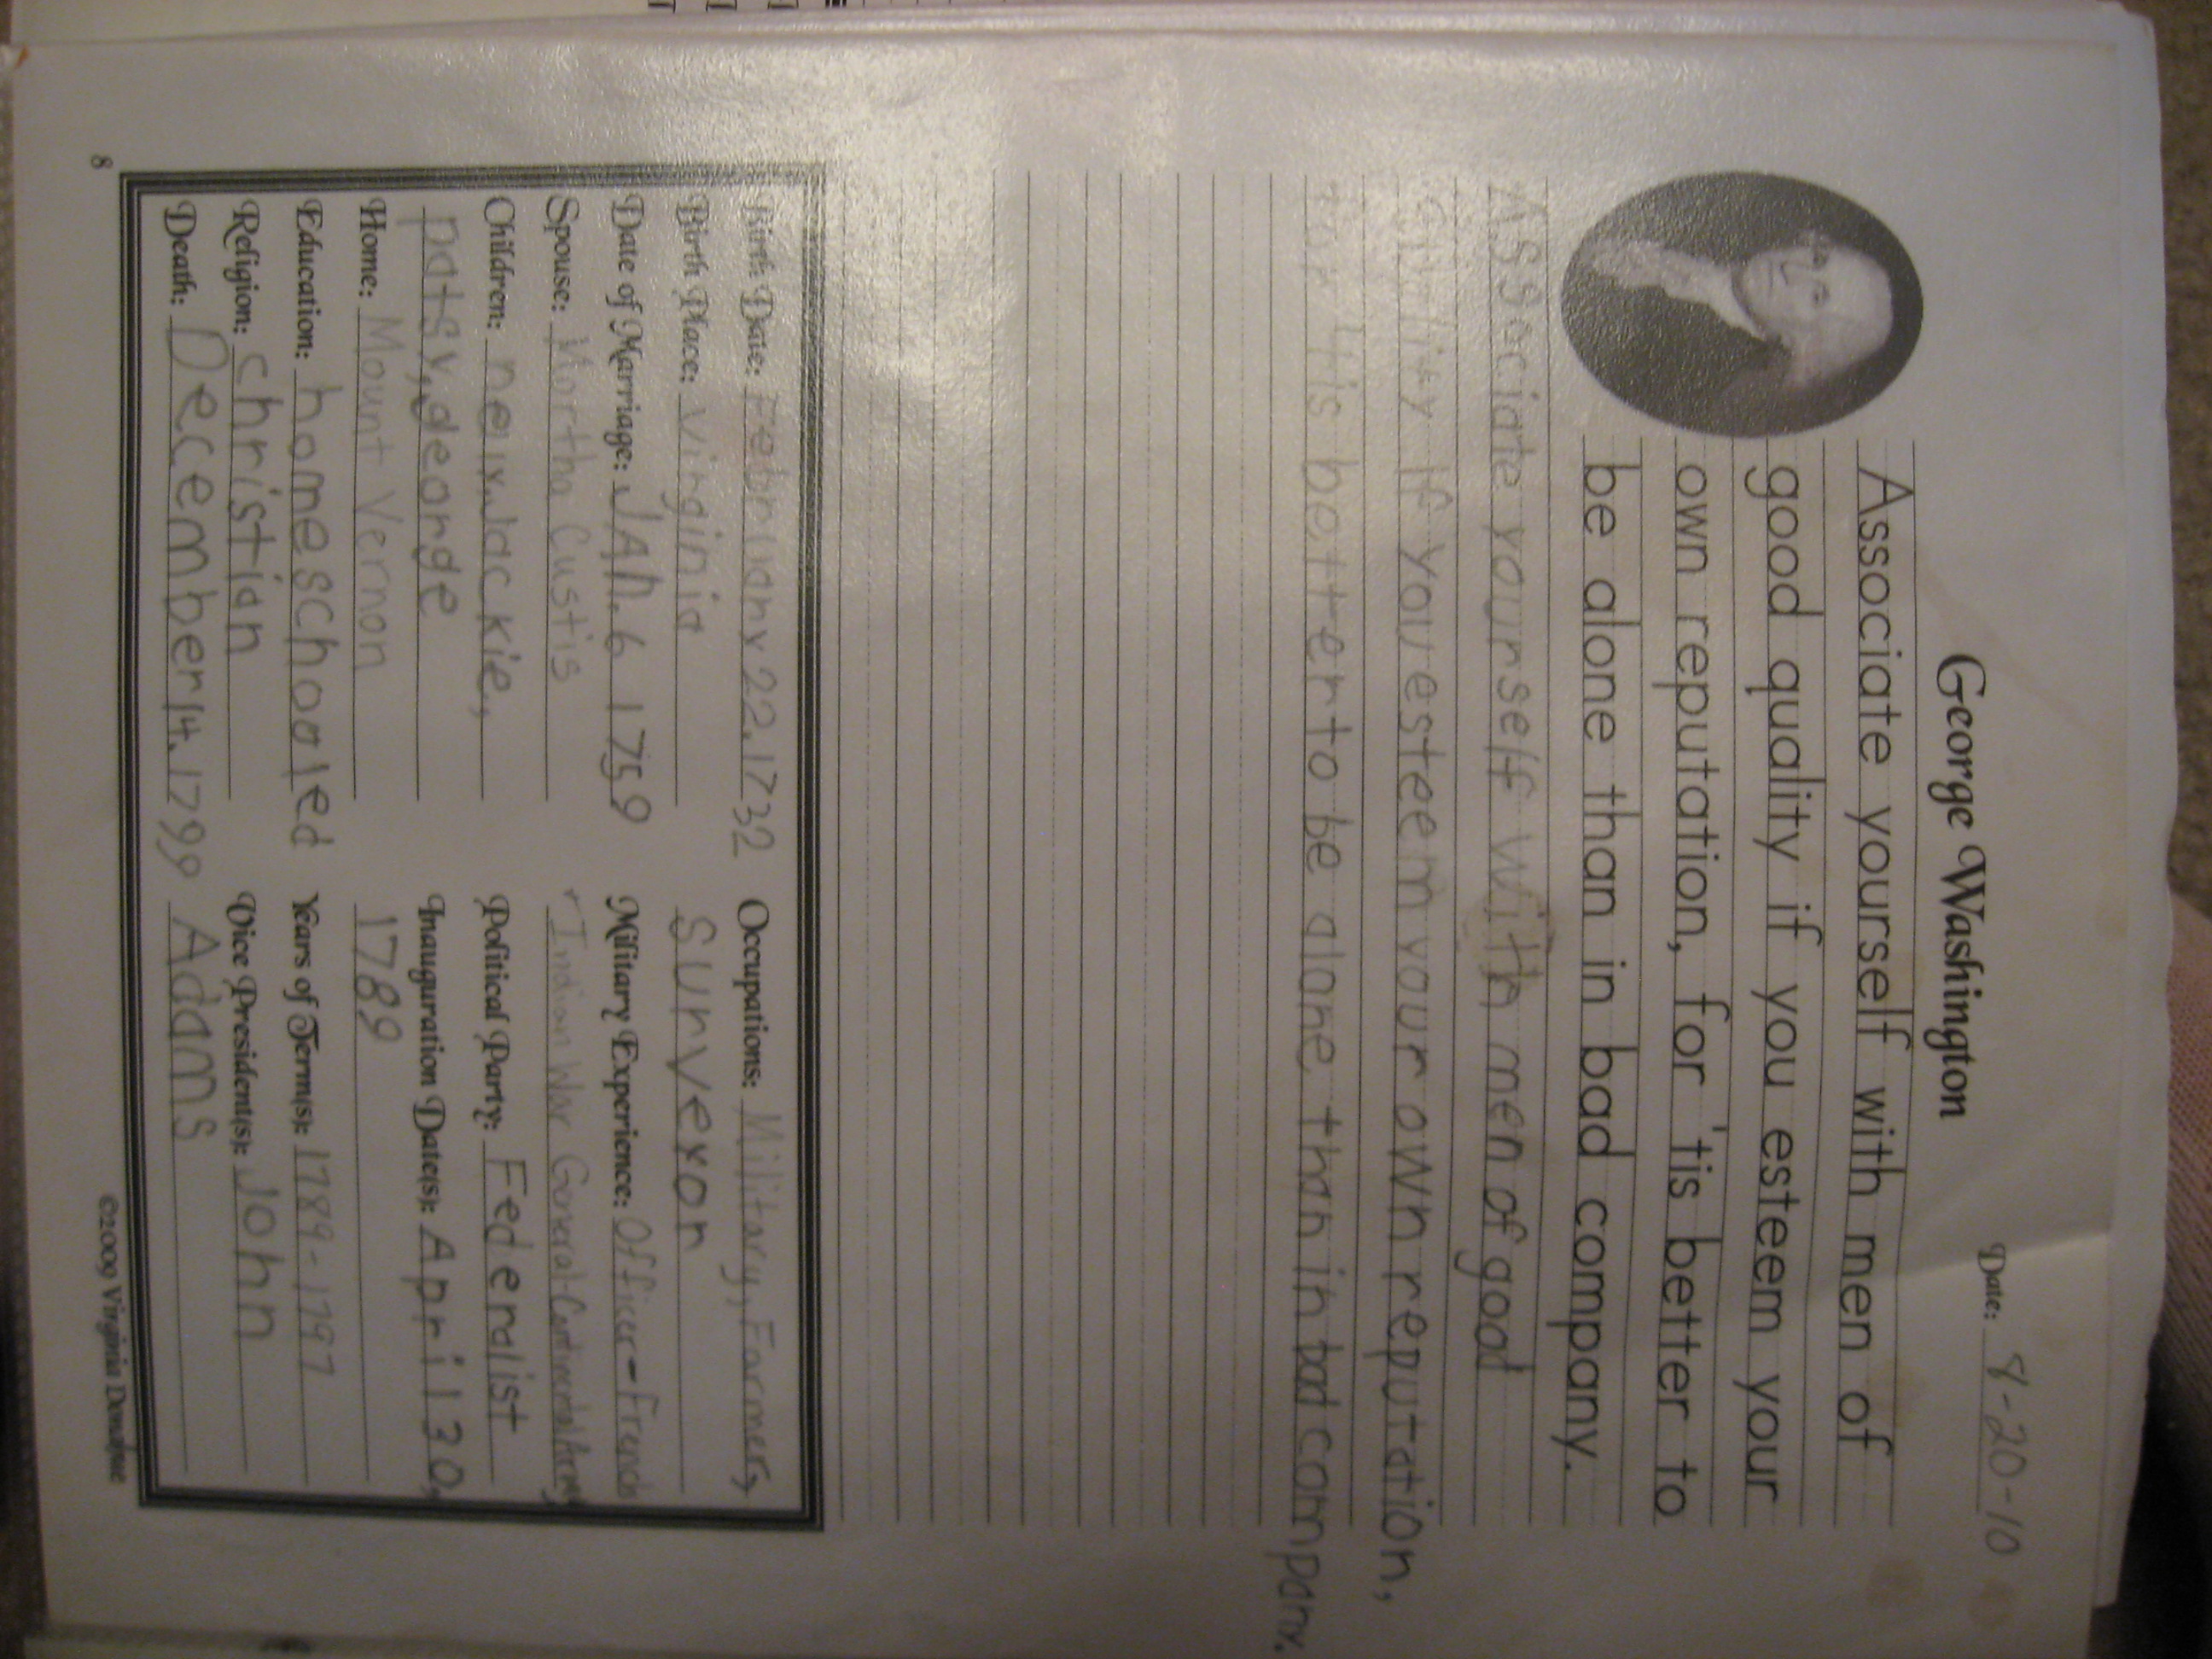 George Washington
Date: 8-20-10
Associate yourself with men of
good quality if you esteem your
own reputation, for 'tis better to
be alone than in bad company.
Associate yourself with men of good
quality if you esteem your own reputation,
for 'tis better to be alone than in bad company.
Birth Date: February 22. 1732
Birth Place: Virginia
Date of Marriage: JAN. 6 1759
Spouse: Martha Custis
Children: nelly, Jackie,
patsy, george
Home: Mount Vernon
Education: homeschooled
Religion: christian
Death: December 14. 1799
Occupations: Military, Farmer,
Surveyor
Military Experience: Officer-French
Indian War General-Continental Army
Political Party: Federalist
Inauguration Date(s): April 30,
1789
Years of Term(s): 1789-1797
Vice President(s): John
Adams
8
©2009 Virginia Donahue